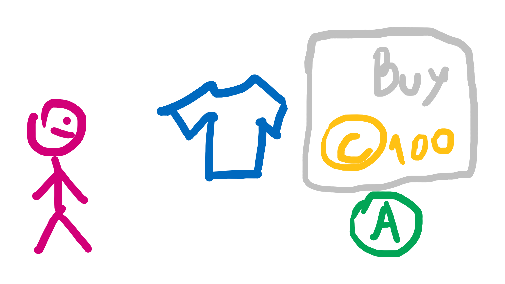 Buy
C 100
A